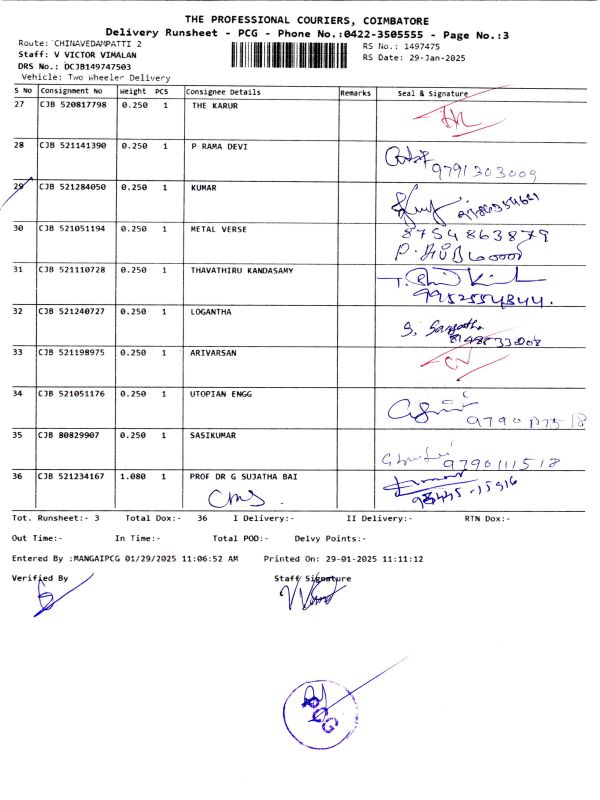 THE PROFESSIONAL COURIERS, COIMBATORE
Delivery Runsheet - PCG - Phone No.:0422-3505555 - Page No.:3
Route: CHINAVEDAMPATTI 2
RS No.: 1497475
Staff: V VICTOR VIMALAN
RS Date: 29-Jan-2025
DRS No.: DCJB149747503
Vehicle: Two Wheeler Delivery
S No Consignment No Weight PCS Consignee Details Remarks Seal & Signature
27 CJB 520817798 0.250 1 THE KARUR
28 CJB 521141390 0.250 1 P RAMA DEVI
9791303009
29 CJB 521284050 0.250 1 KUMAR
30 CJB 521051194 0.250 1 METAL VERSE 8754863879
31 CJB 521110728 0.250 1 THAVATHIRU KANDASAMY
9952554844.
32 CJB 521240727 0.250 1 LOGANTHA
33 CJB 521198975 0.250 1 ARIVARSAN
34 CJB 521051176 0.250 1 UTOPIAN ENGG
35 CJB 80829907 0.250 1 SASIKUMAR
9790111518
36 CJB 521234167 1.080 1 PROF DR G SUJATHA BAI
Tot. Runsheet:- 3 Total Dox:- 36 I Delivery:- II Delivery:- RTN Dox:-
Out Time:- In Time:- Total POD:- Delvy Points:-
Entered By :MANGAIPCG 01/29/2025 11:06:52 AM Printed On: 29-01-2025 11:11:12
Verified By Staff Signature
PCG